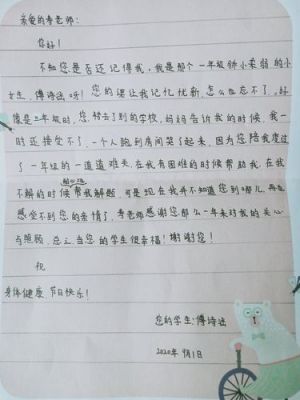 亲爱的李老师：
您好！
不知您是否还记得我，我是那个一年级娇小柔弱的小
女生，傅诗涵呀！您的课让我记忆犹新，怎么也忘不了。好
像是三年级时，您转去了别的学校，妈妈告诉我的时候，我一
时还接受不了，一个人跑到房间哭了起来，因为您陪我度过
了一年级的一道道难关，在我有困难的时候帮助我，在我
不解的时候帮我解题，可是现在我并不知道您到哪儿，再也
感受不到您的亲情了，李老师感谢您那么一年来对我的关心
与照顾，总之当您的学生很幸福！谢谢您！
祝
身体健康，节日快乐！
您的学生：傅诗
2020年9月1日